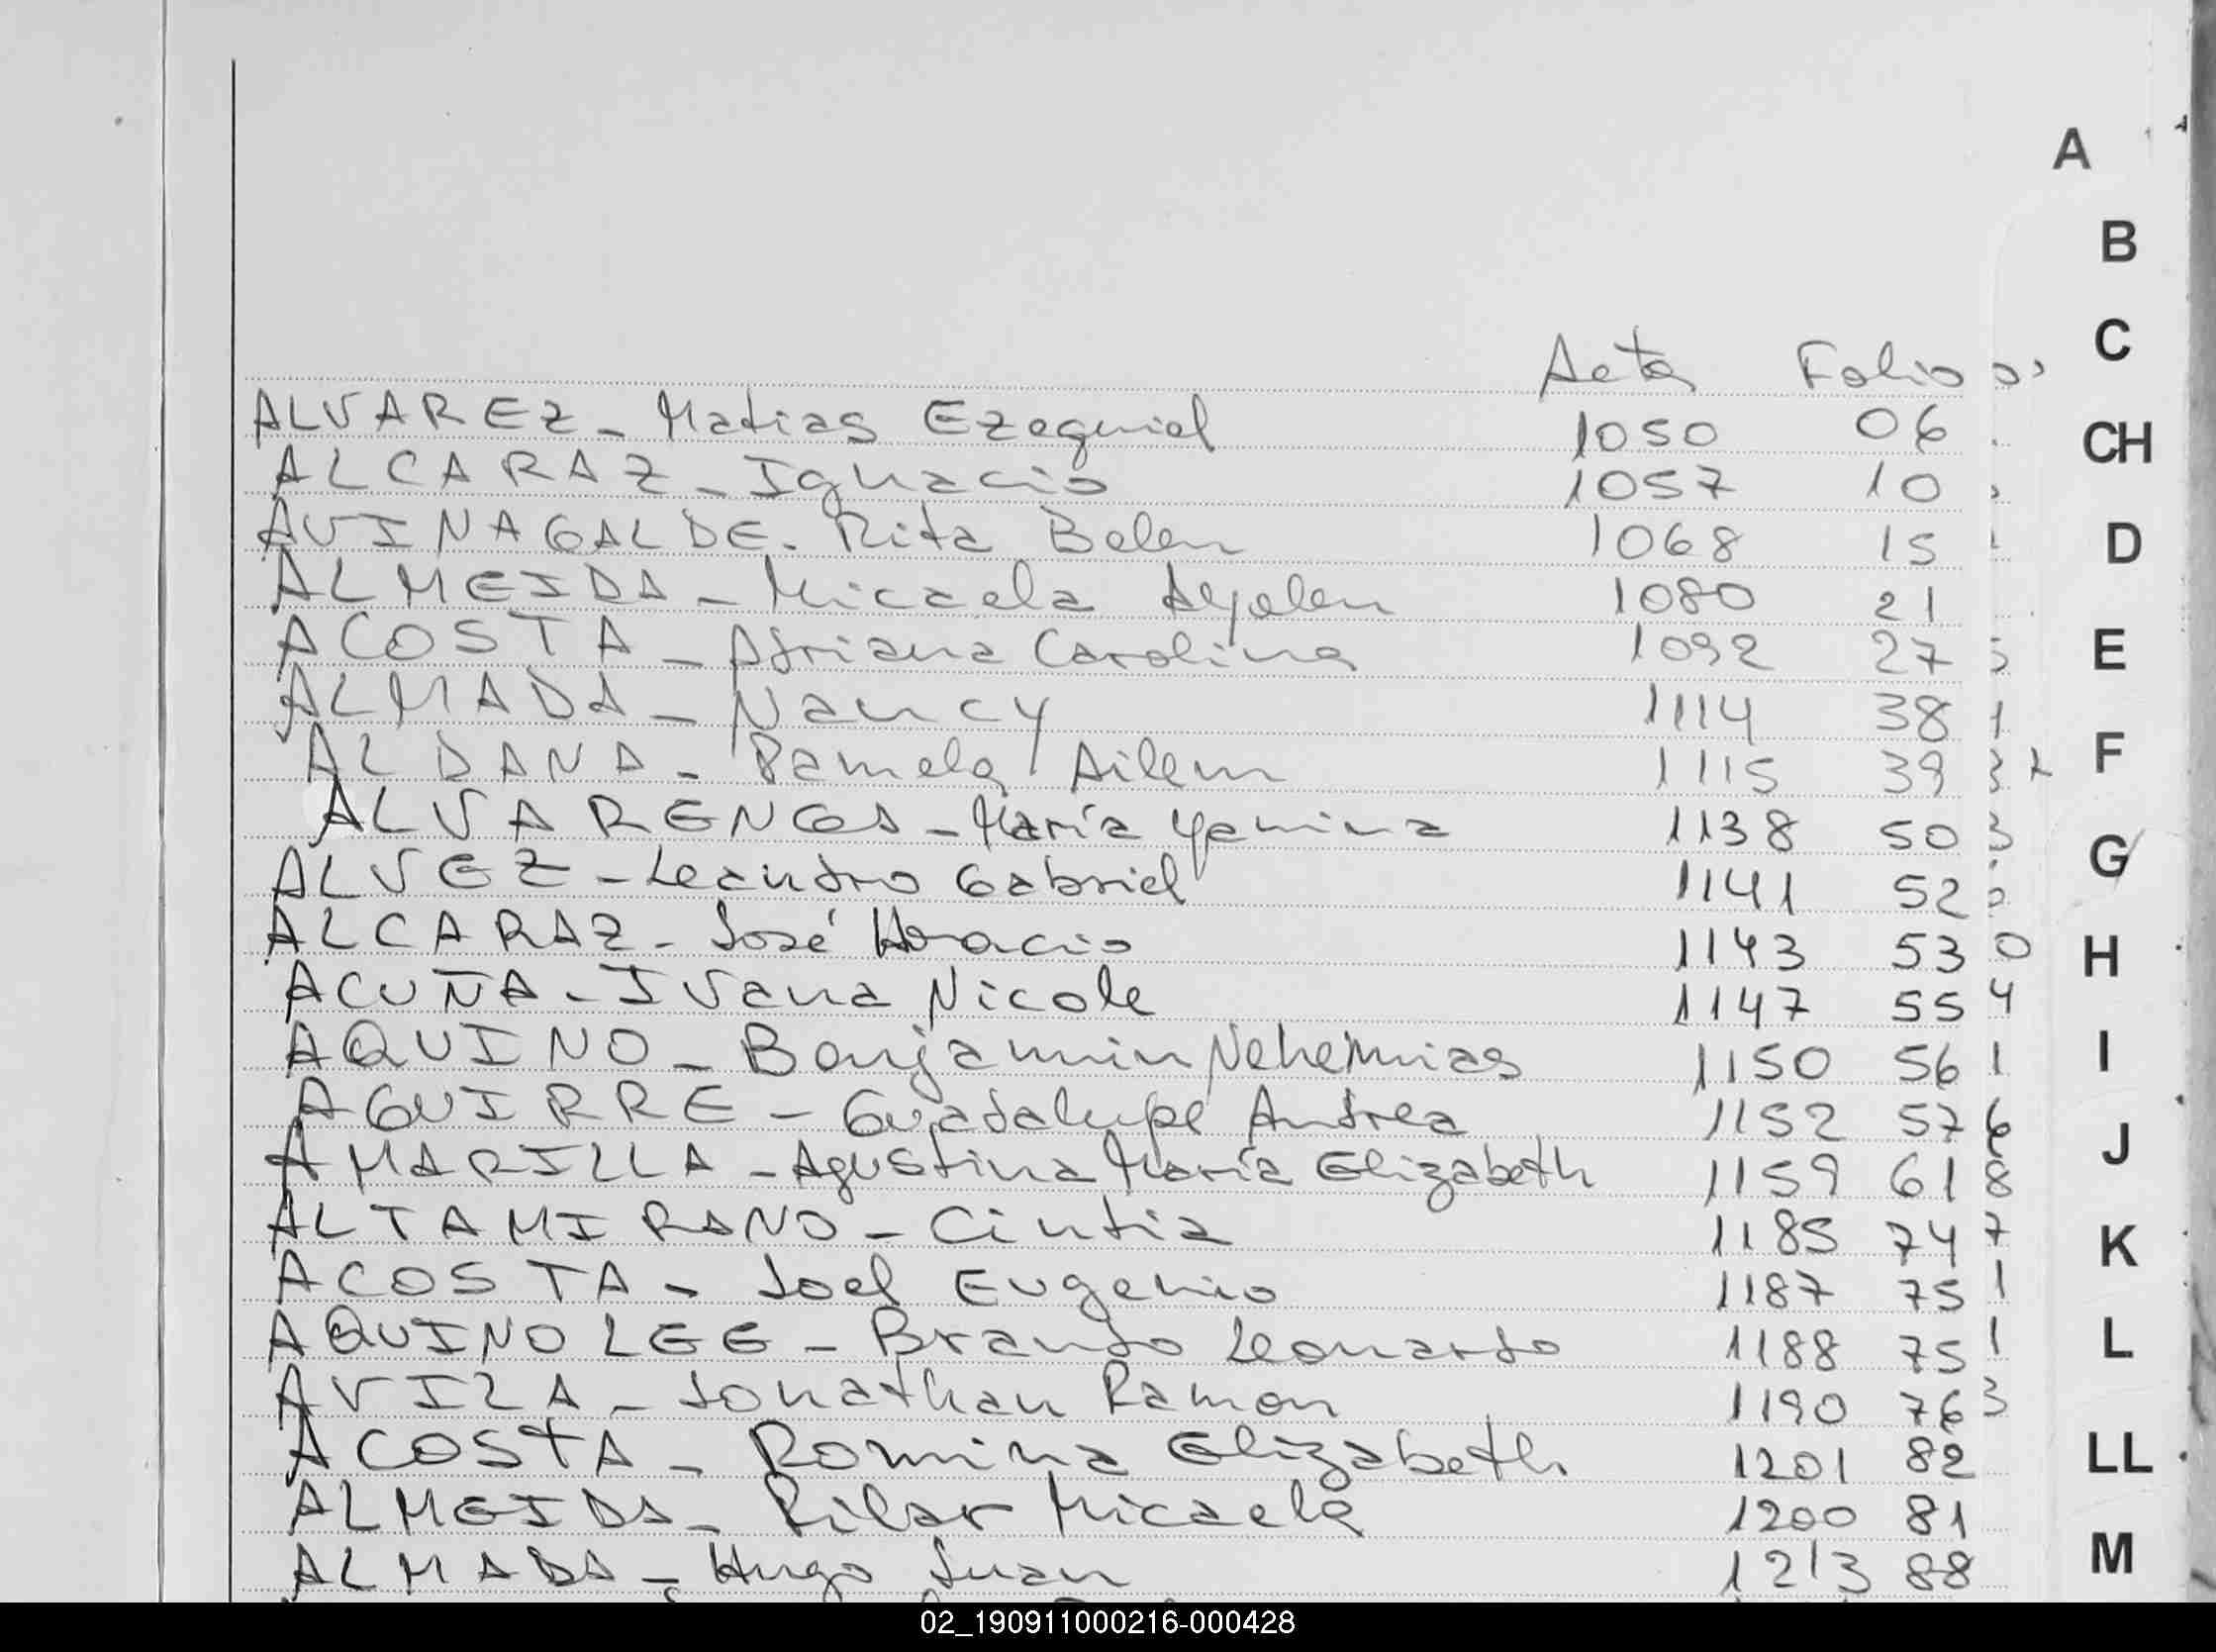 A
B
C
Acta Folio
ALVAREZ - Matias Ezequiel 1050 06
CH
ALCARAZ - Ignacio 1057 10
AVINAGALDE. Rita Belen 1068 15
D
ALMEIDA - Micaela Ayelen 1080 21
ACOSTA - Adriana Carolina 1092 27
E
ALMADA - Nancy 1114 38
ALDANA - Pamela Ailem 1115 39
F
ALVARENGA - María Yamina 1138 50
G
ALVEZ - Leandro Gabriel 1141 52
ALCARAZ - José Horacio 1143 53 0
H
ACUÑA - Ivana Nicole 1147 55 4
AQUINO - Benjamin Nehemias 1150 56 1
I
AGUIRRE - Guadalupe Andrea 1152 57 6
J
AMARILLA - Agustina María Elizabeth 1159 61 8
ALTAMIRANO - Cintia 1185 74 7
K
ACOSTA - Joel Eugenio 1187 75 1
AQUINO LEE - Brando Leonardo 1188 75 1
L
AVILA - Jonathan Ramon 1190 76 3
ACOSTA - Romina Elizabeth 1201 82
LL
ALMEIDA - Pilar Micaela 1200 81
ALMADA - Hugo Juan 1213 88
M
02_190911000216-000428